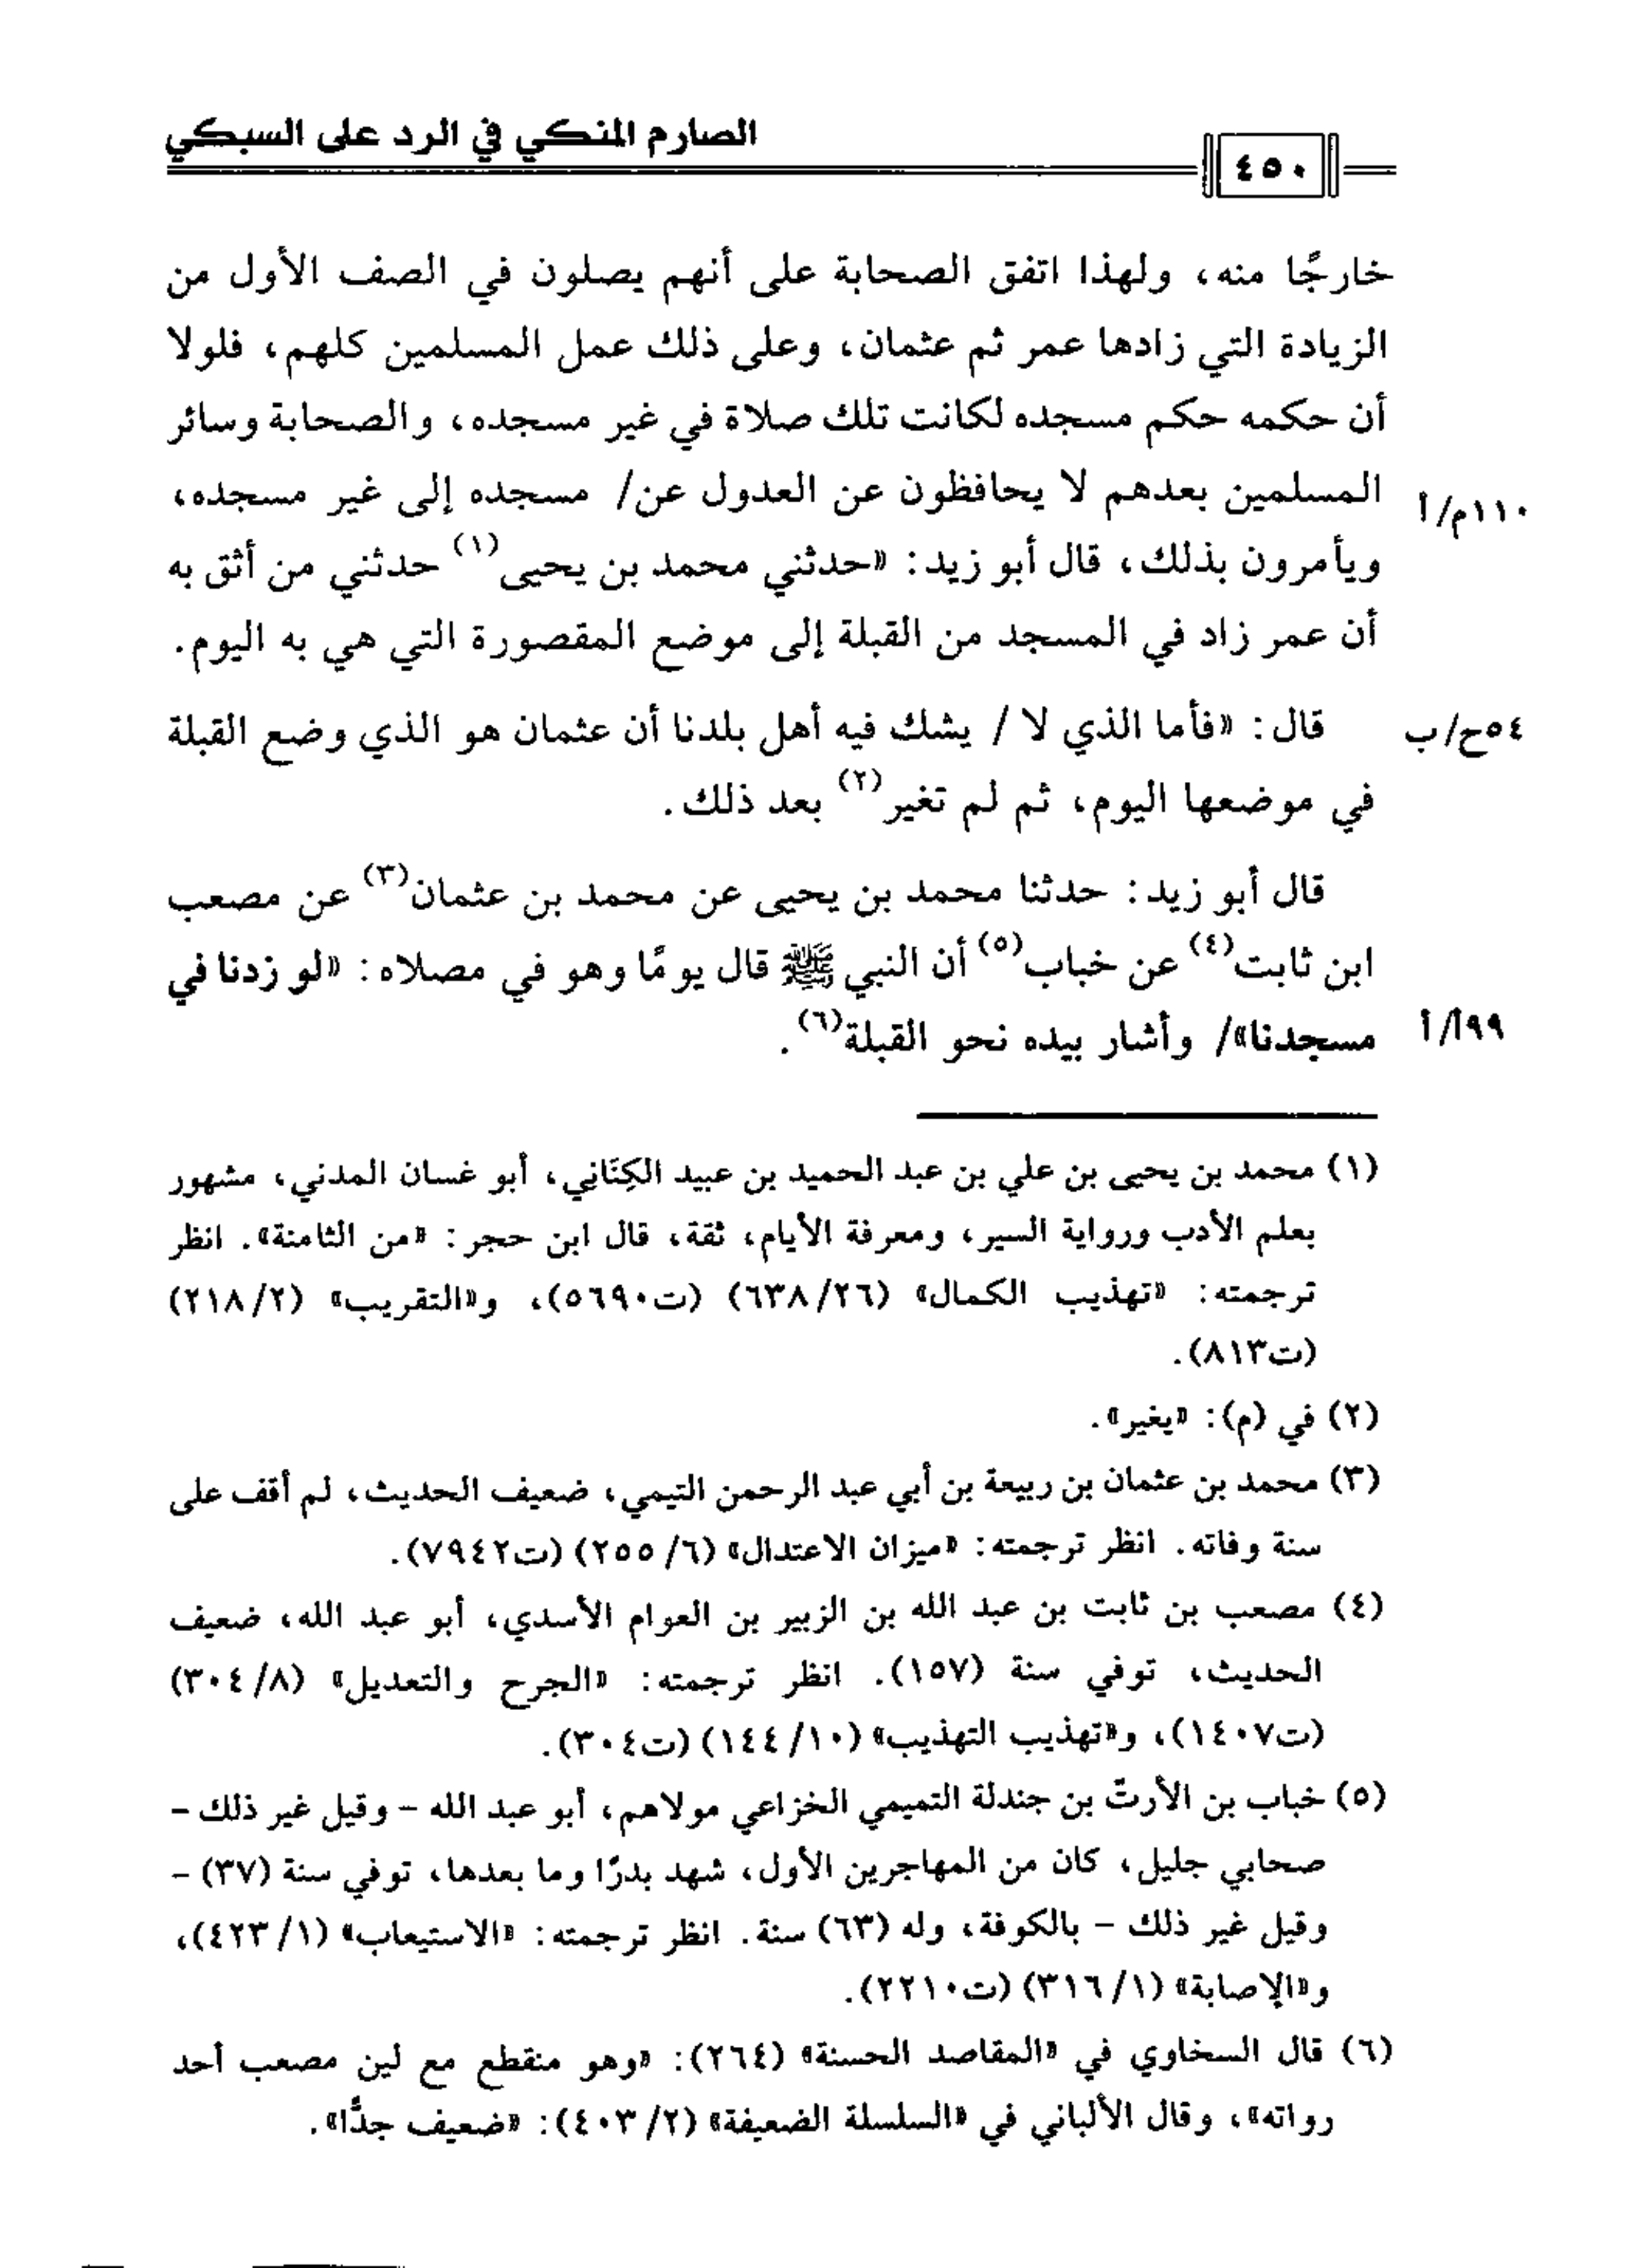 الصارم المنكي في الرد على السبكي
٤٥٠
خارجًا منه، ولهذا اتفق الصحابة على أنهم يصلون في الصف الأول من
الزيادة التي زادها عمر ثم عثمان، وعلى ذلك عمل المسلمين كلهم، فلولا
أن حكمه حكم مسجده لكانت تلك صلاة في غير مسجده، والصحابة وسائر
المسلمين بعدهم لا يحافظون عن العدول عن/ مسجده إلى غير مسجده،
١١٠م/أ
ويأمرون بذلك، قال أبو زيد: «حدثني محمد بن يحيى(١) حدثني من أثق به
أن عمر زاد في المسجد من القبلة إلى موضع المقصورة التي هي به اليوم.
قال: «فأما الذي لا / يشك فيه أهل بلدنا أن عثمان هو الذي وضع القبلة
٥٤ح/ب
في موضعها اليوم، ثم لم تغير(٢) بعد ذلك.
قال أبو زيد: حدثنا محمد بن يحيى عن محمد بن عثمان(٣) عن مصعب
ابن ثابت(٤) عن خباب(٥) أن النبي ﷺ قال يومًا وهو في مصلاه: «لو زدنا في
مسجدنا»/ وأشار بيده نحو القبلة(٦).
٩٩أ/أ
(١) محمد بن يحيى بن علي بن عبد الحميد بن عبيد الكِنَاني، أبو غسان المدني، مشهور
بعلم الأدب ورواية السير، ومعرفة الأيام، ثقة، قال ابن حجر: «من الثامنة». انظر
ترجمته: «تهذيب الكمال» (٦٣٨/٢٦) (ت٥٦٩٠)، و«التقريب» (٢١٨/٢)
(ت٨١٣).
(٢) في (م): «يغير».
(٣) محمد بن عثمان بن ربيعة بن أبي عبد الرحمن التيمي، ضعيف الحديث، لم أقف على
سنة وفاته. انظر ترجمته: «ميزان الاعتدال» (٢٥٥/٦) (ت٧٩٤٢).
(٤) مصعب بن ثابت بن عبد الله بن الزبير بن العوام الأسدي، أبو عبد الله، ضعيف
الحديث، توفي سنة (١٥٧). انظر ترجمته: «الجرح والتعديل» (٣٠٤/٨)
(ت١٤٠٧)، و«تهذيب التهذيب» (١٤٤/١٠) (ت٣٠٤).
(٥) خباب بن الأرتّ بن جندلة التميمي الخزاعي مولاهم، أبو عبد الله - وقيل غير ذلك -
صحابي جليل، كان من المهاجرين الأول، شهد بدرًا وما بعدها، توفي سنة (٣٧) -
وقيل غير ذلك - بالكوفة، وله (٦٣) سنة. انظر ترجمته: «الاستيعاب» (٤٢٣/١)،
و«الإصابة» (٣١٦/١) (ت٢٢١٠).
(٦) قال السخاوي في «المقاصد الحسنة» (٢٦٤): «وهو منقطع مع لين مصعب أحد
رواته»، وقال الألباني في «السلسلة الضعيفة» (٤٠٣/٢): «ضعيف جدًّا».